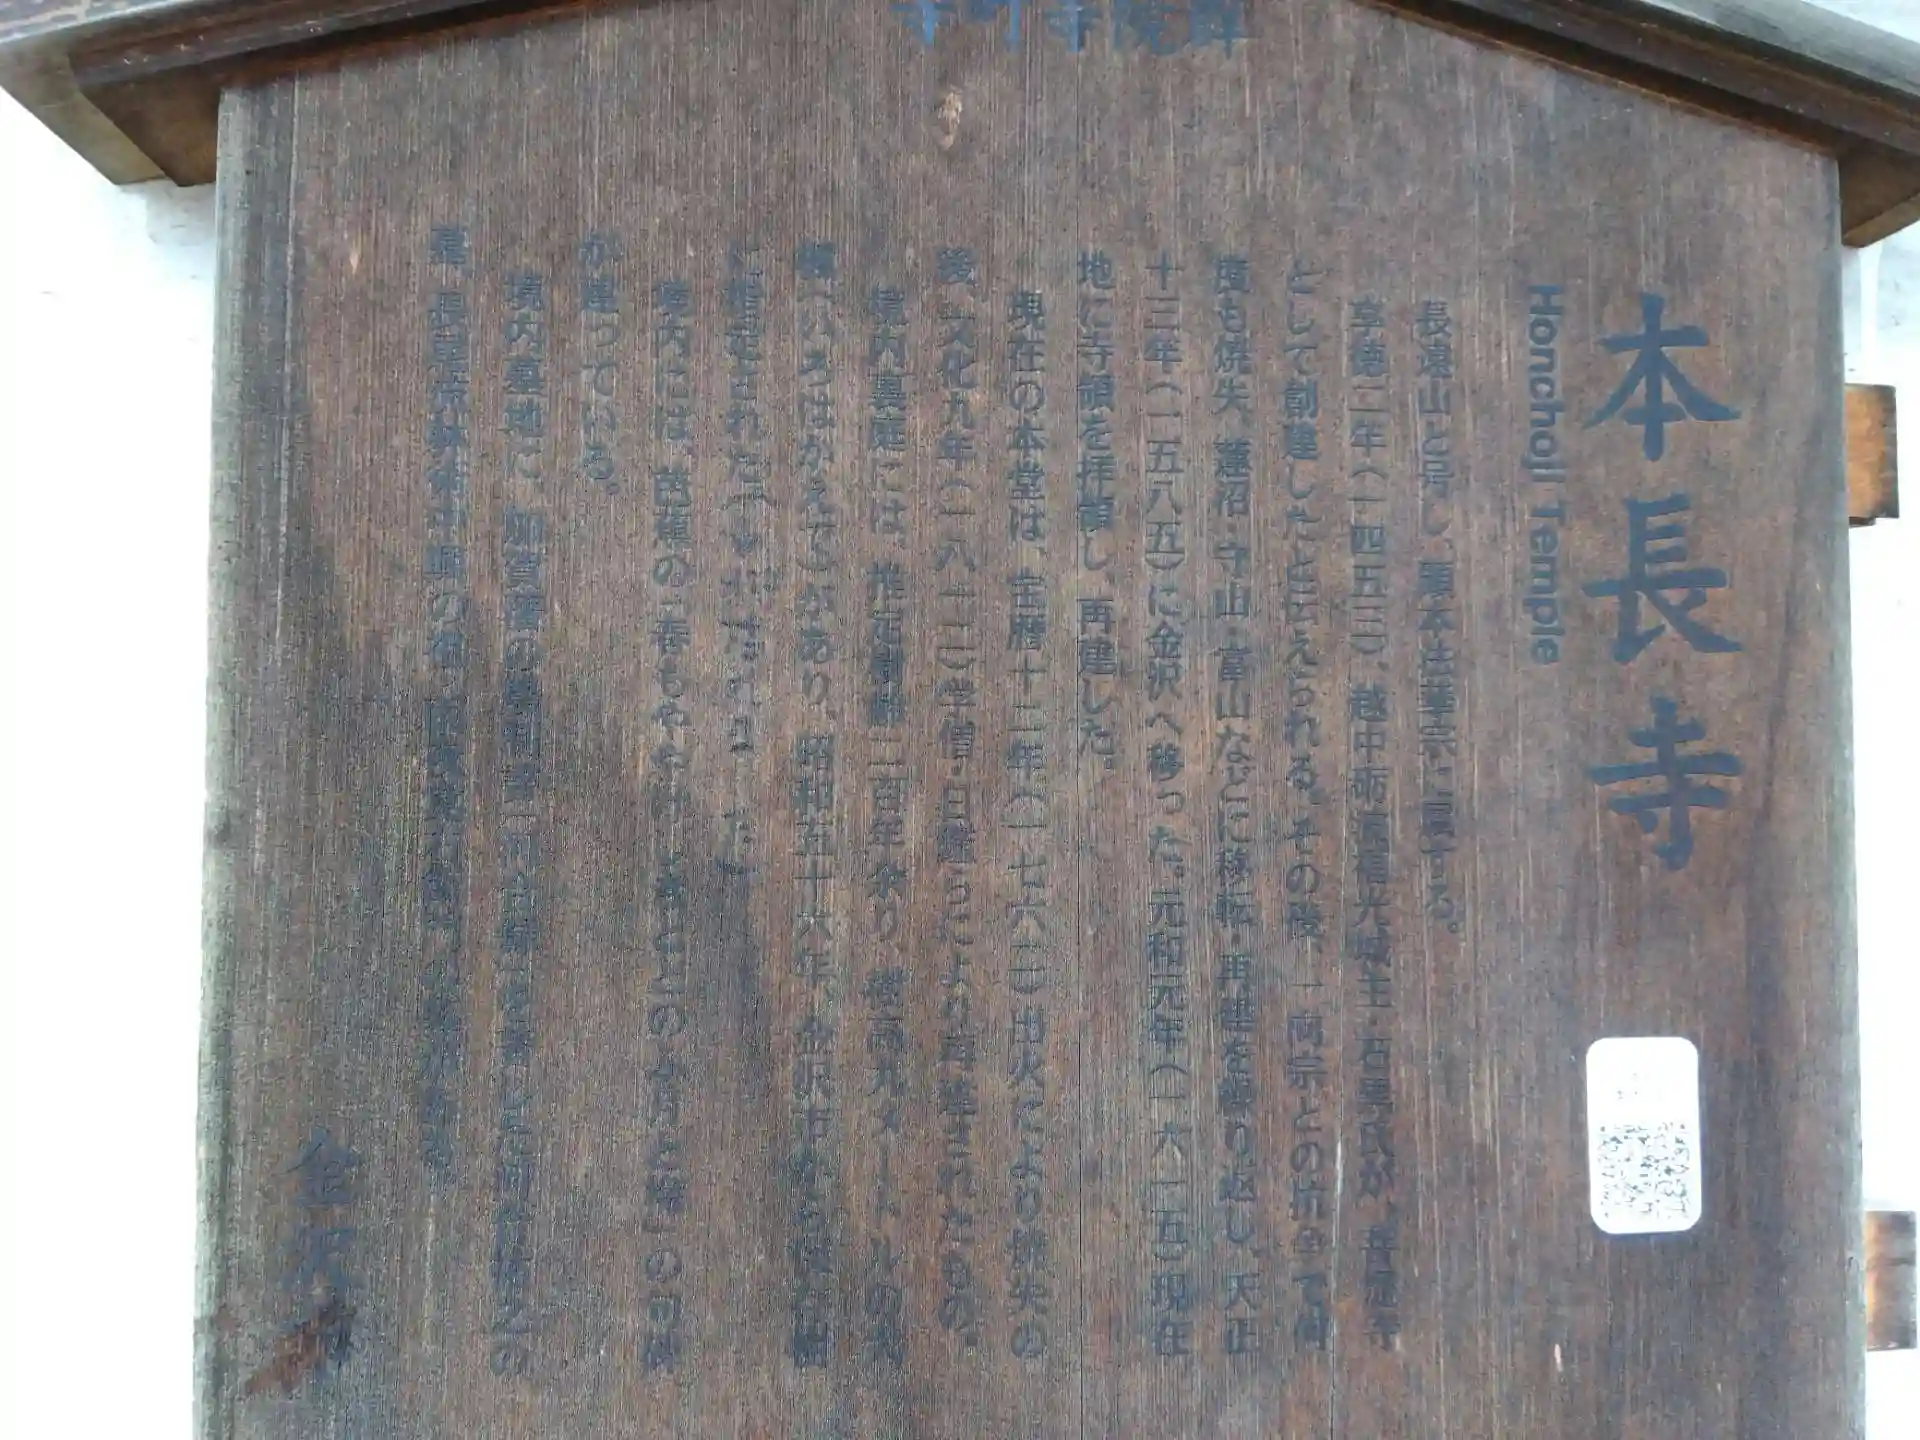 寺町寺院群
本長寺
Honchoji Temple
長遠山と号し、顕本法華宗に属する。
享徳二年(一四五三)、越中砺波福光城主・石黒氏が、菩提寺
として創建したと伝えられる。その後、一向宗との抗争で
も焼失、蓮沼・守山・富山などに移転・再建を繰り返し、天正
十三年(一五八五)に金沢へ移った。元和元年(一六一五)現在
地に寺領を拝領し、再建した。
現在の本堂は、宝暦十二年(一七六二)出火により焼失の
後、文化九年(一八一二)学僧・日鑑らにより再建されたもの。
境内裏庭には、推定樹齢二百年余り、樹高九メートルの
があり、昭和五十六年、金沢市から保存樹
に指定された
境内には、芭蕉の「春もややけしきととのふ月と梅」の句碑
が建っている。
境内墓地に、加賀藩の
墓、長尾流躰術中興の祖
金沢市